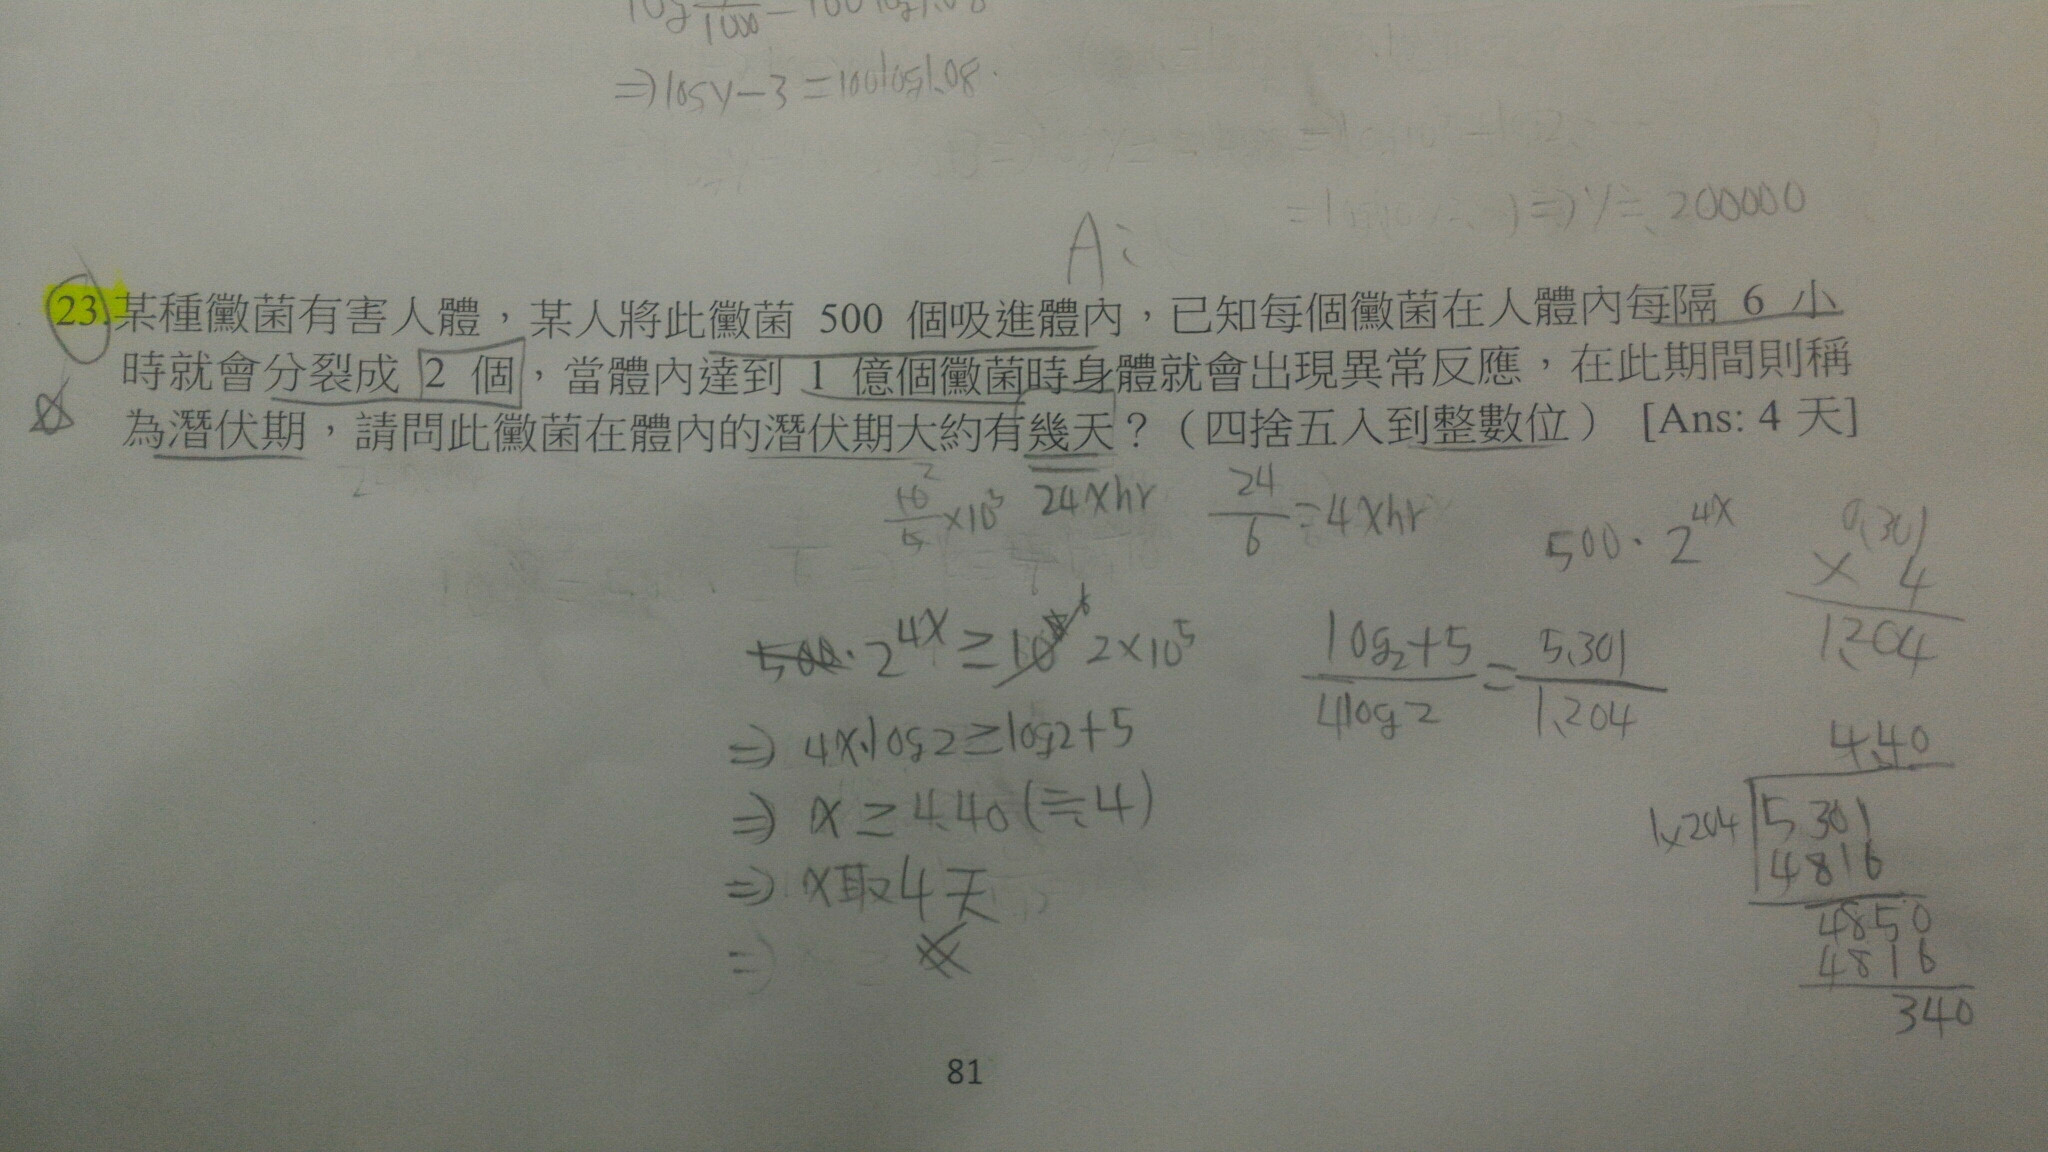 ⇒logy-3=100log1.08
⇒y≒200000
A:
23.某種黴菌有害人體，某人將此黴菌 500 個吸進體內，已知每個黴菌在人體內每隔 6 小
時就會分裂成 2 個，當體內達到 1 億個黴菌時身體就會出現異常反應，在此期間則稱
為潛伏期，請問此黴菌在體內的潛伏期大約有幾天？（四捨五入到整數位） [Ans: 4 天]
10²/5×10³ 24xhr 24/6=4xhr
500·2^4x
0.301
× 4
1.204
500·2^4x≥10⁸ 2×10⁵
⇒ 4x·log2≥log2+5
⇒ x≥4.40(≒4)
⇒ x取4天
log2+5/4log2=5.301/1.204
4.40
1.204 5.301
4816
4850
4816
340
81